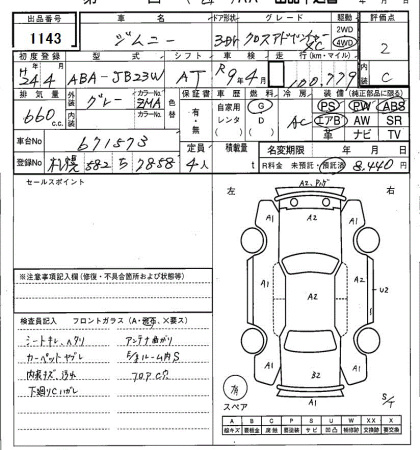 出品番号 車名 ドア形状 グレード 駆動 評価点
1143 ジムニー 3DR クロスアドベンチャーXC 2WD 4WD 2
初度登録 型式 シフト 車検 走行(km・マイル) 内装
H24 4 ABA-JB23W AT R9年4月 100,779 C
排気量 外装 カラーNo. 色替 保証書 車歴 燃料 冷房 装備(純正部品に限る)
660 c.c. グレー ZMA 有・無 自家用 G AC PS PW ABS
内装 カラーNo. レンタ D エアB AW SR
革 ナビ TV
車台No 671573 定員 積載量 名変期限 年 月 日
登録No 札幌 582 ち 7858 4人 t R料金 未預託・預託済 8,440円
セールスポイント
左 A2, P 右
A2
A1 A1
A1 A1
A2 U2
A1 A1
B2
A1 A1
A1
有
スペア S/T
※注意事項記入欄(修復・不具合箇所および状態等)
検査員記入 フロントガラス(A・飛石、X要ス)
シートキレ、ヘタリ アンテナ曲がり
カーペットヤブレ ルーム内S
内装キズ、汚れ フロアC穴
下廻りC
A B C P S U W X XX
線キズ 要板金 腐蝕 要塗装 サビ 凹凸 補修跡 要交換